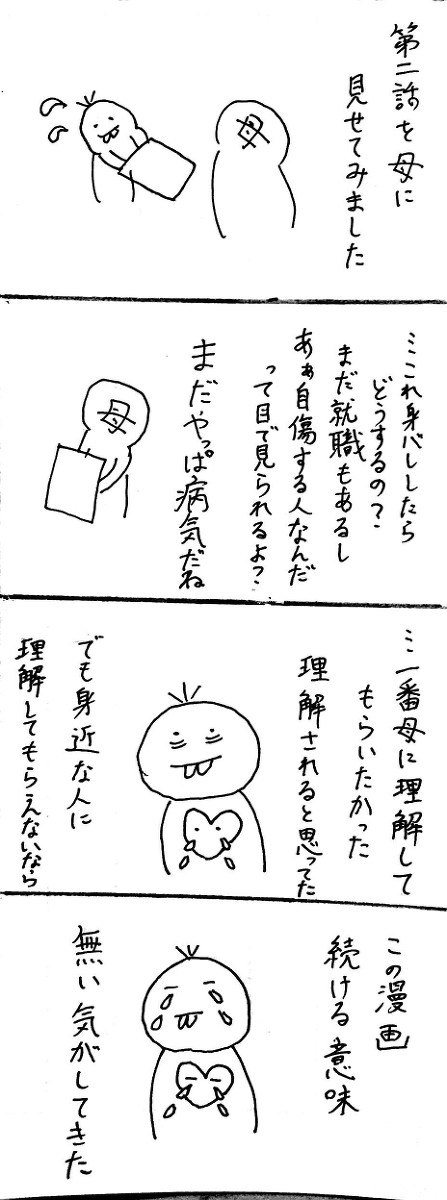 第二話を母に
見せてみました
母
…これ身バレしたら
どうするの?
まだ就職もあるし
あぁ自傷する人なんだ
って目で見られるよ?
まだやっぱ病気だね
母
…一番母に理解して
もらいたかった
理解されると思ってた
でも身近な人に
理解してもらえないなら
この漫画
続ける意味
無い気がしてきた